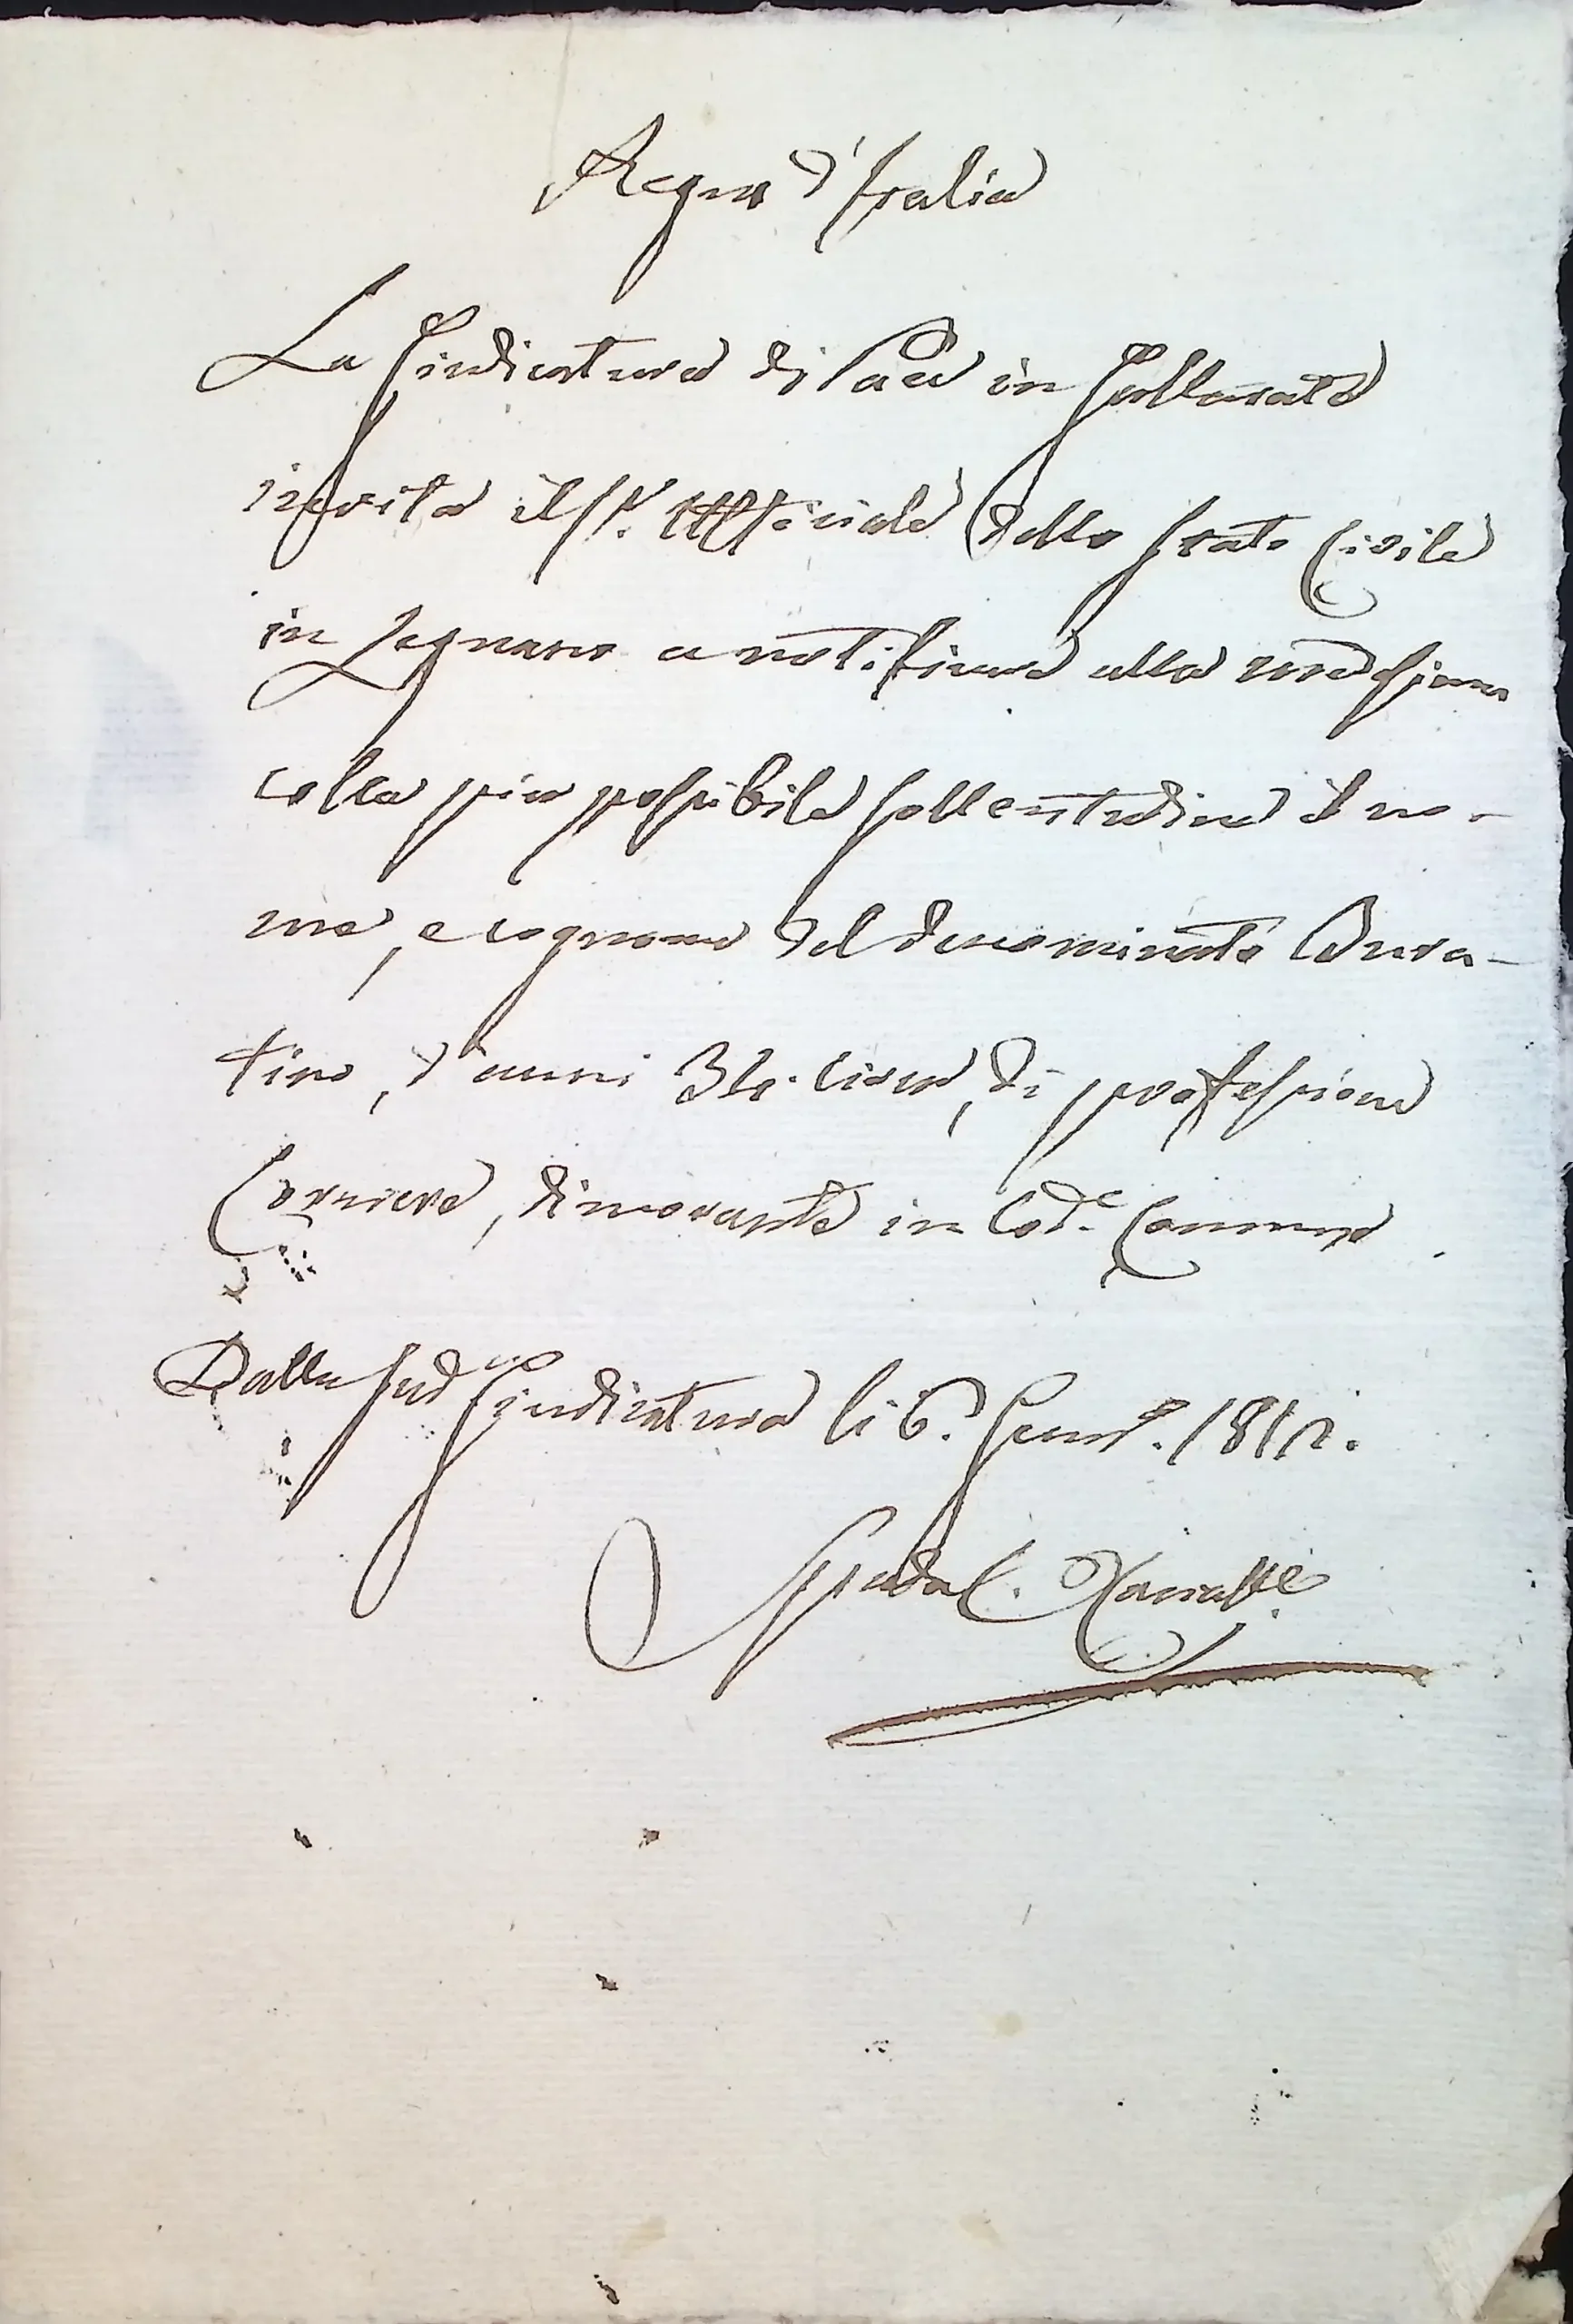 Regno d'Italia
La Giudicatura di Pace in Gallarate
invita il Sr. Uffiziale dello Stato Civile
in Legnano a notificare alla medesima
colla più possibile sollecitudine il no-
me, e cognome del denominato
tino, d'anni circa, di professione
dimorante in cod.e Comune
Dalla sud.a Giudicatura li 6. 1812.